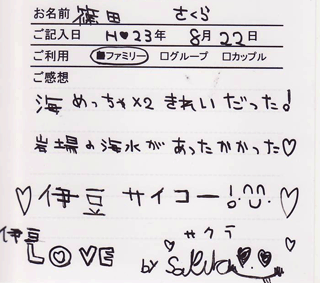 お名前 篠田 さくら
ご記入日 H♥23年 8月22日
ご利用 ☑ファミリー □グループ □カップル
ご感想
海めっちゃ×2きれいだった!
岩場の海水があったかかった♡
♡伊豆サイコー!♡
伊豆 サクラ
LOVE by Sakura